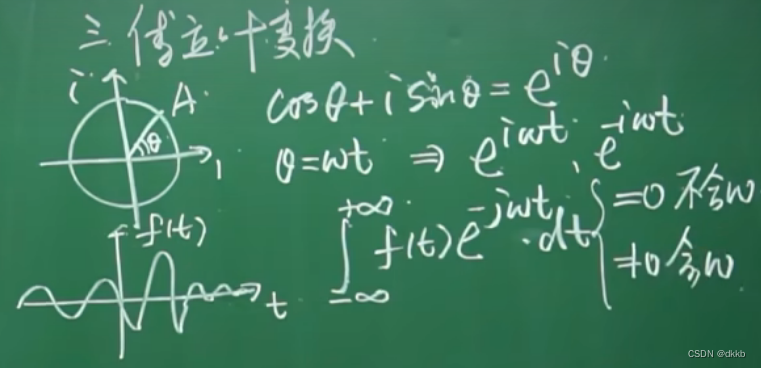 三.傅立叶变换
i
A
θ
1
cosθ+isinθ=e^{iθ}
θ=wt ⇒ e^{iwt}, e^{-iwt}
f(t)
t
∫_{-∞}^{+∞} f(t)e^{-jwt}·dt { =0 不含w
≠0 含w
CSDN @dkkb